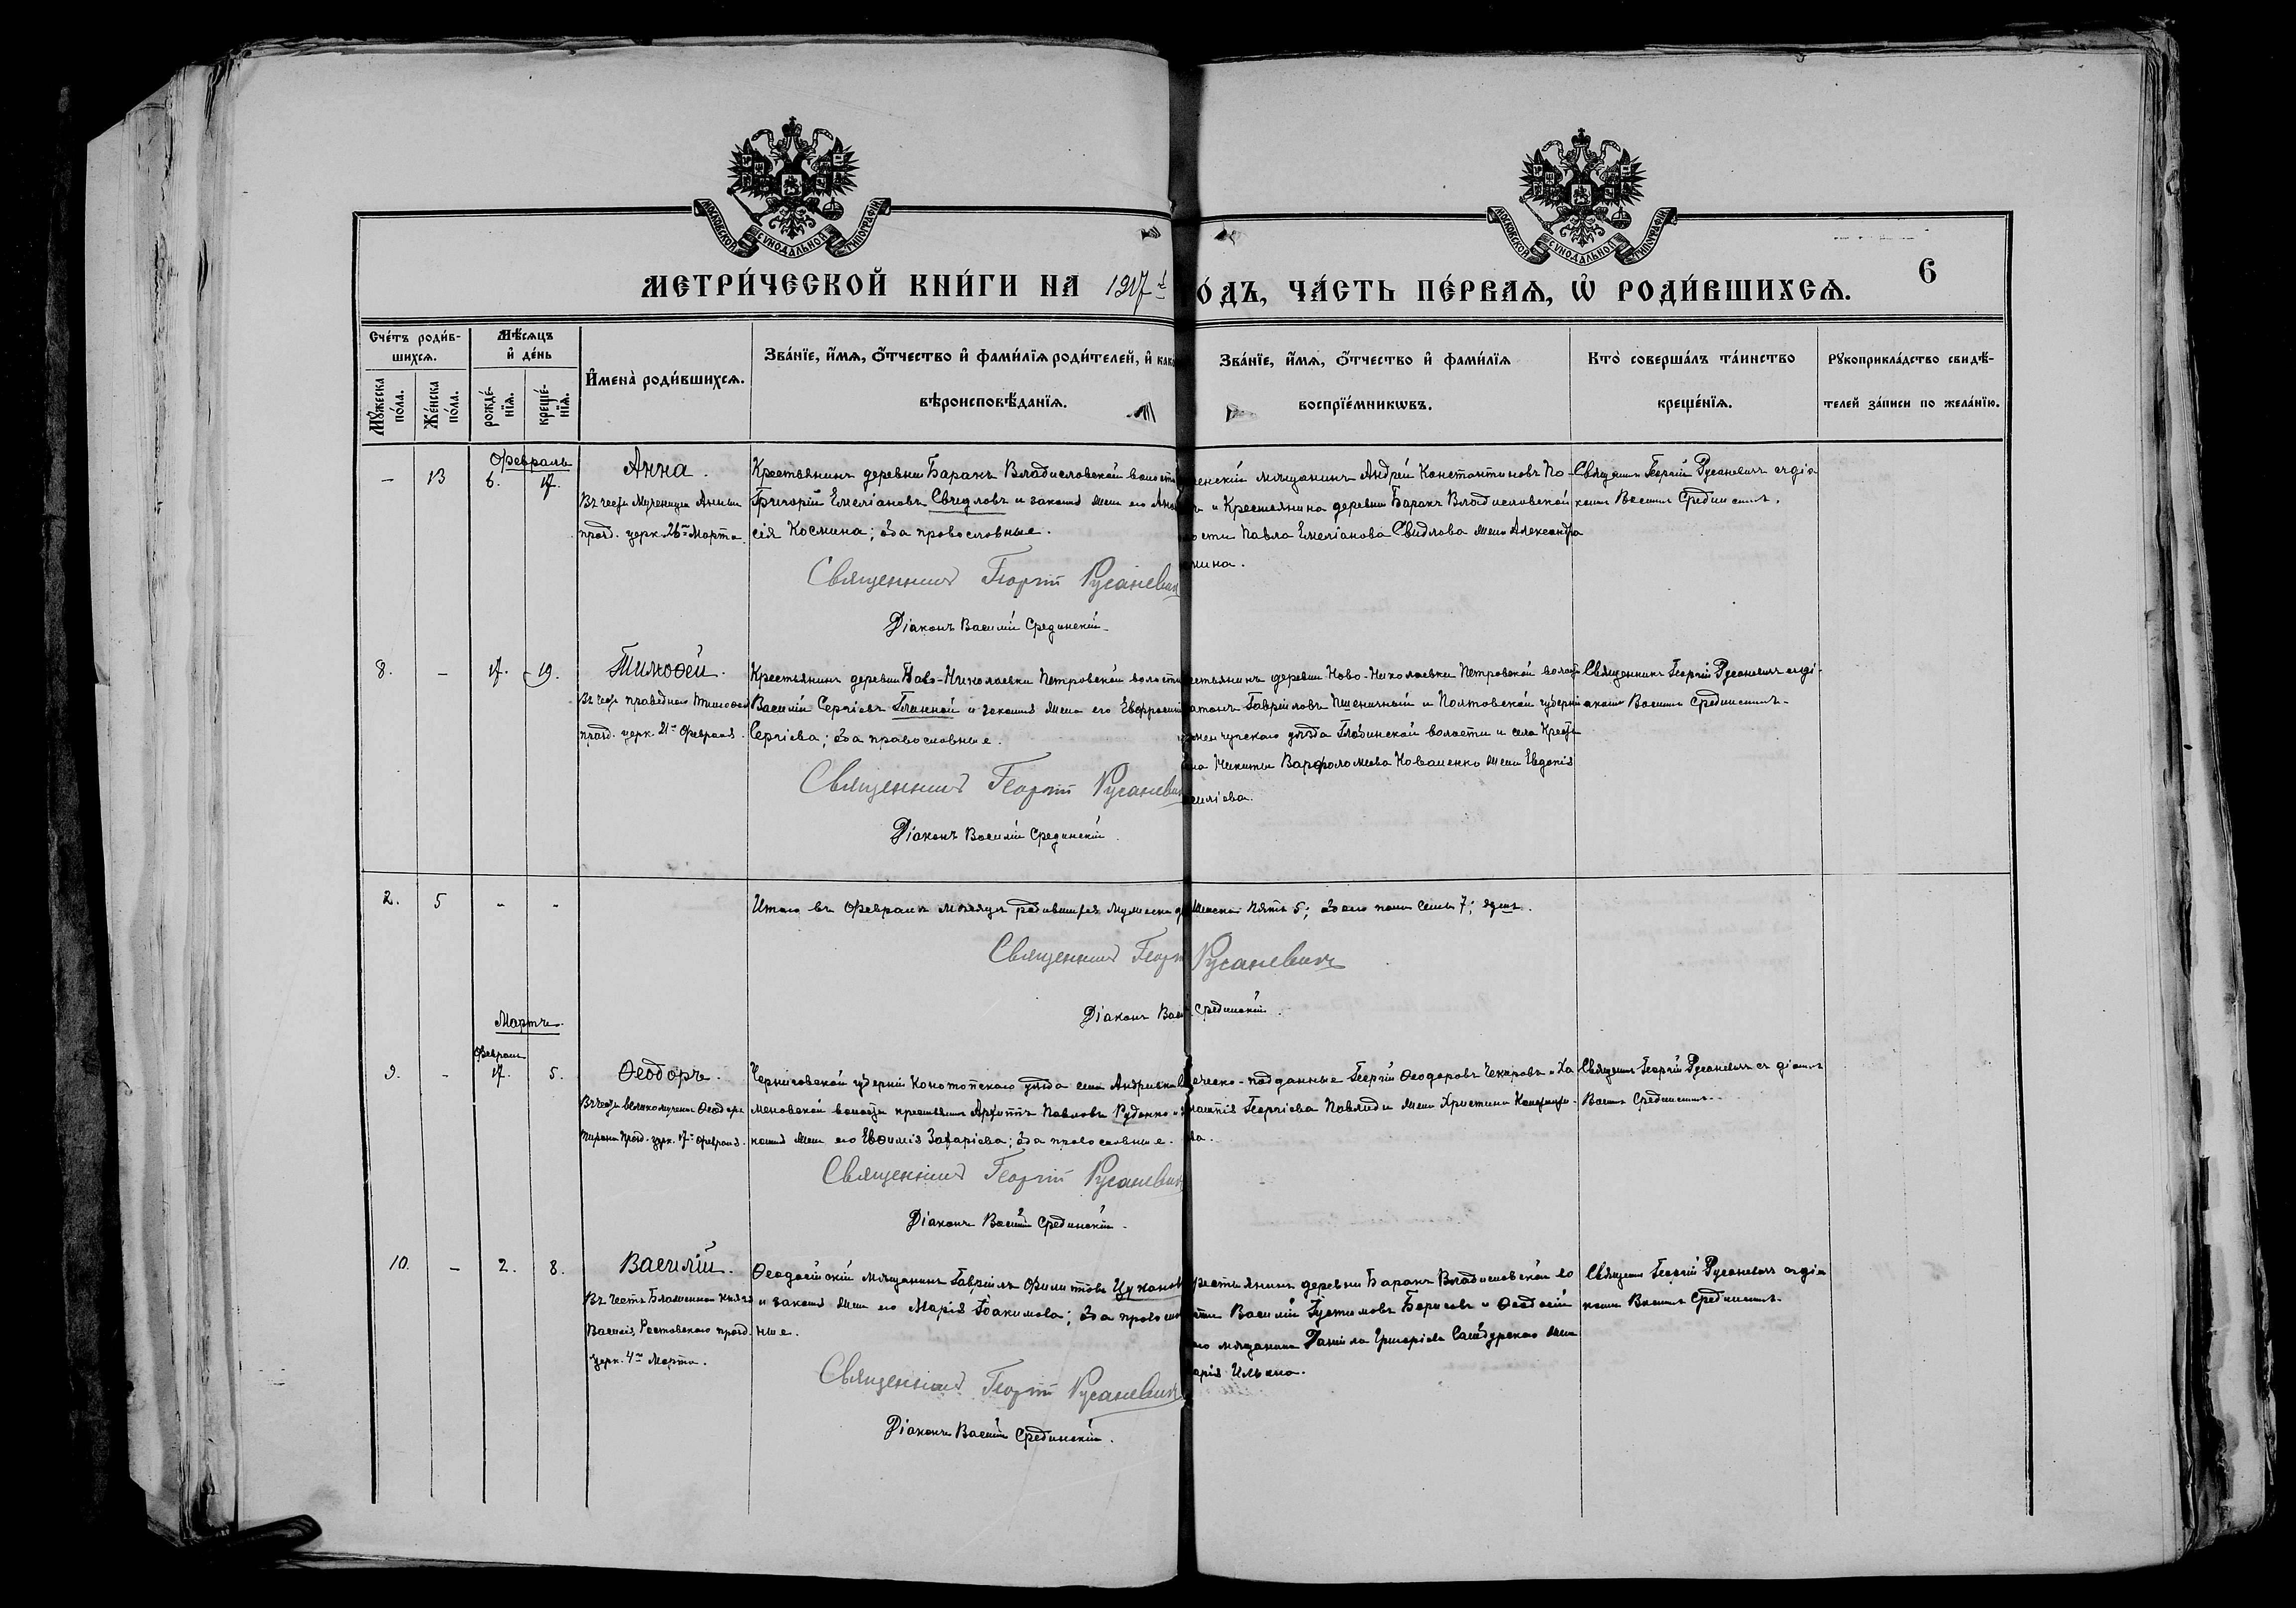 МОСКОВСКОЙ СУНОДАЛЬНОЙ ТИПОГРАФІИ
МОСКОВСКОЙ СУНОДАЛЬНОЙ ТИПОГРАФІИ
МЕТРИ́ЧЕСКОЙ КНИ́ГИ НА 1917 г
О́ДЪ, ЧА́СТЬ ПЕ́РВАѦ, Ѡ РОДИ́ВШИХСѦ.
6
Сче́тъ роди́в-
шихсѧ.
Мꙋ́жеска по́ла.
Же́нска по́ла.
Мѣ́сѧцъ и де́нь
рожде́-нїѧ.
креще́-нїѧ.
И҆мена̀ роди́вшихсѧ.
Зва́нїе, и҆́мѧ, ѻ҆́тчество и҆ фами́лїѧ роди́телей, и҆ како
вѣроисповѣ́данїѧ.
Зва́нїе, и҆́мѧ, ѻ҆́тчество и҆ фами́лїѧ
воспрїе́мникѡвъ.
Кто̀ соверша́лъ та́инство
креще́нїѧ.
Рꙋкоприкла́дство свидѣ́-
телей за́писи по жела́нїю.
Февраль
– 13 6. 17.
Анна.
Въ честь Мученицы Анны
празд. церк. 26го Марта.
Крестьянинъ деревни Баракъ Владиславской волости
Григорій Емеліановъ Свидловъ и законная жена его Ана
сія Космина; оба православные.
Священникъ Георгій Русаневичъ
Діаконъ Василій Срединскій
енскій мѣщанинъ Андрей Константиновъ По-
и Крестьянина деревни Баракъ Владиславской
ости Павла Емеліанова Свидлова жена Александра
мина.
Священникъ Георгій Русаневичъ съ діа
кономъ Василіемъ Срединскимъ.
8. – 17. 19.
Тимоѳей.
Въ честь праведнаго Тимоѳея
празд. церк. 21го Февраля.
Крестьянинъ деревни Ново-Николаевки Петровской волости
Василій Сергіевъ Глинной и законная жена его Евфросинія
Сергіева; оба православные.
Священникъ Георгій Русаневичъ
Діаконъ Василій Срединскій.
естьянинъ деревни Ново-Николаевки Петровской волост
Гавріиловъ Пшеничный и Полтавской губерніи
менчугскаго уѣзда Глобинской волости и села Крест
на Никиты Варфоломѣева Коваленко жена Евдокія
силіева.
Священникъ Георгій Русаневичъ съ ді-
акономъ Василіемъ Срединскимъ.
2. 5 - -
Итого въ Февралѣ мѣсяцѣ родившихся мужеска
женска пять 5; обоего пола семь 7; душъ.
Священникъ Георгій Русаневичъ
Діаконъ Василій Срединскій.
Мартъ
Февраль
9. - 17. 5.
Ѳеодоръ.
Въ честь великомученика Ѳеодора
Тирона празд. церк. 17го Февраля.
Черниговской губерніи Конотопскаго уѣзда села Андреевки
меновской волости крестьянинъ Павловъ Руденко и за
конная жена его Евѳимія Захаріева; оба православные.
Священникъ Георгій Русаневичъ
Діаконъ Василій Срединскій.
еческо-подданные Георгій Ѳеодоровъ Чекировъ и Ха
Георгіева Павлиди жена Христина
ва.
Священникъ Георгій Русаневичъ съ діакономъ
Василіемъ Срединскимъ.
10. – 2. 8.
Василій.
Въ честь Блаженнаго князя
Василія Ростовскаго празд.
церк. 4го Марта.
Ѳеодосійскій мѣщанинъ Гавріилъ Филиповъ Цукановъ
и законная жена его Марія Іоакимова; оба православ
ные.
Священникъ Георгій Русаневичъ
Діаконъ Василій Срединскій.
рестьянинъ деревни Баракъ Владиславской во
сти Василій Устимовъ Борисовъ и Ѳеодосій
аго мѣщанина Даніила Григоріева жена
арія Ильина.
Священникъ Георгій Русаневичъ съ діа
кономъ Василіемъ Срединскимъ.